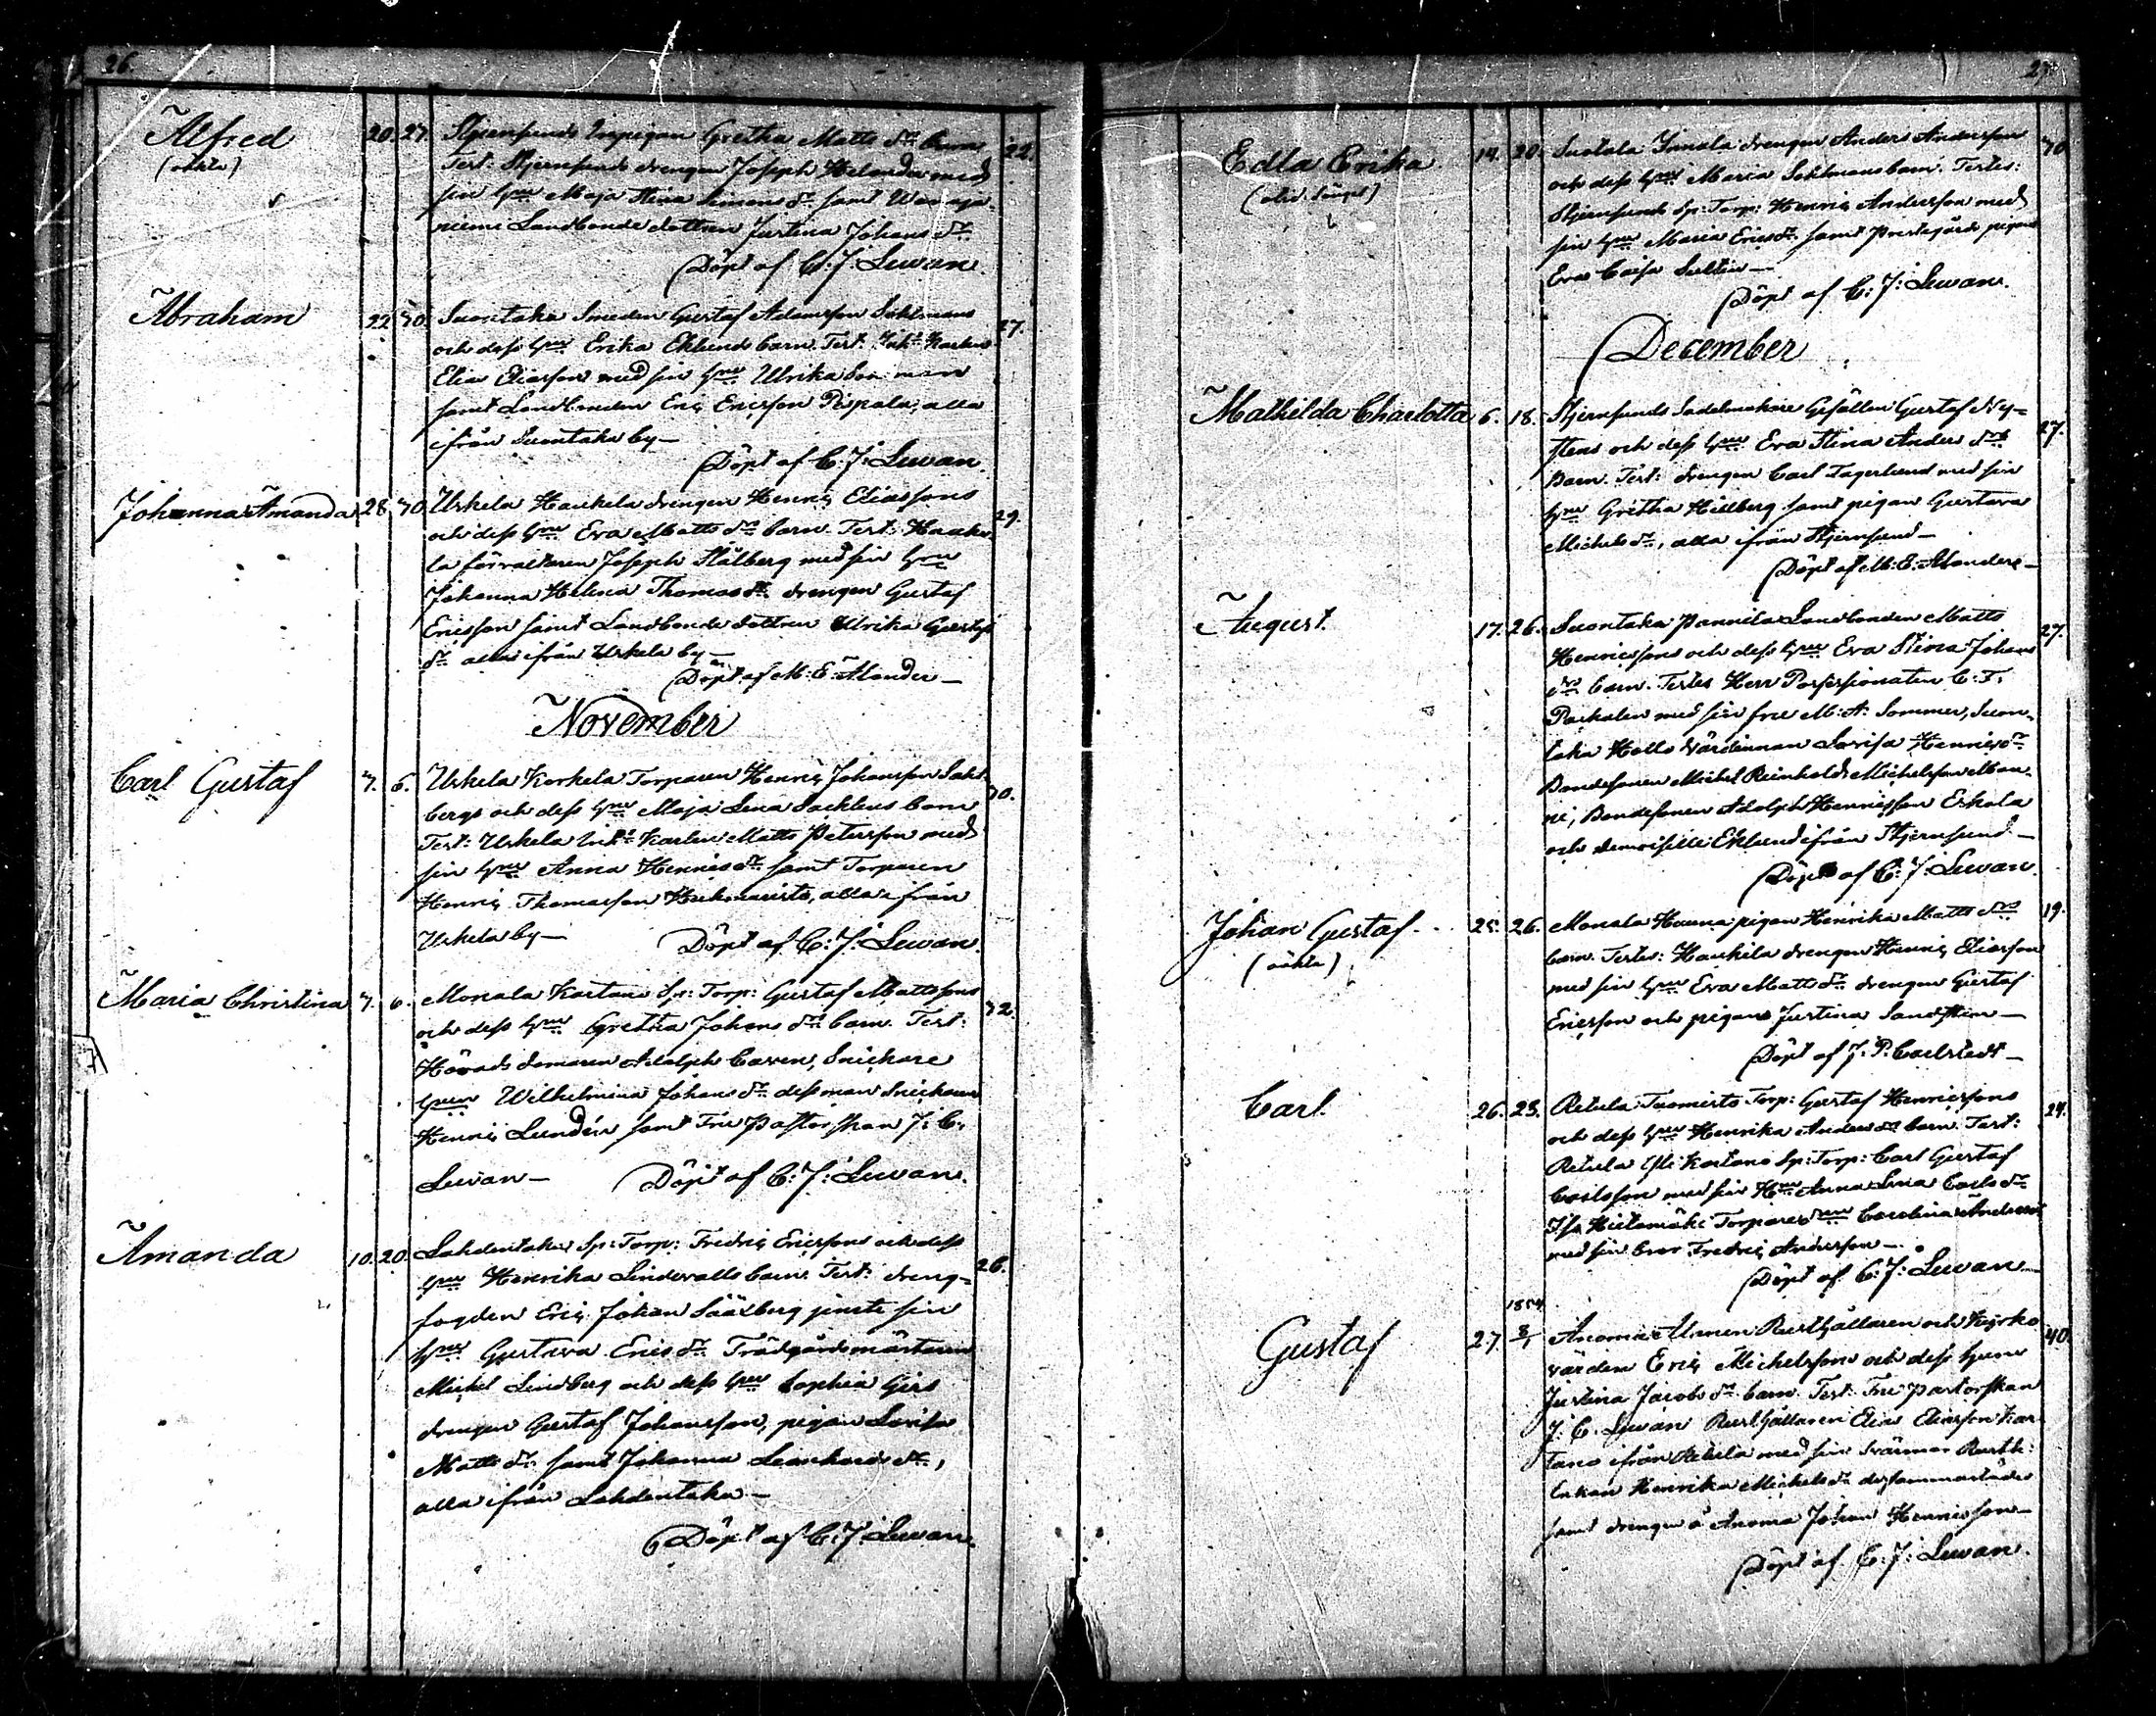 26.
Alfred 20. 27. Stjernsunds Inpigan Gretha Matts drs barn 22.
(oäkta) Test: Stjernsunds drengen Joseph Helander med
sin hru Maja Stina Simons dr samt
Landbonde dottren Justina Johans dr
Döpt af C: J: Lewan.
Abraham 22 30. Suontaka Smeden Gustaf Adamsson Sahlmans 27.
och dess hru Erika Eklunds barn. Test:
Elia Eliasson med sin hru Ulrika
samt Landbonden Eric Ericsson Pispala, alla
ifrån Suontaka by—
Döpt af C: J: Lewan.
Johanna Amanda 28 30 Urkela Haukela drengen Henric Eliassons 29.
och dess hru Eva Matts drs barn. Test: Hauke-
la förvaltaren Joseph Stålberg med sin hru
Johanna Helena Thomas dr drengen Gustaf
Ericsson samt Landbonde dottren Ulrika Gustafs
dr alla ifrån Urkela by—
Döpt af M: E: Alander—
November
Carl Gustaf 3. 6. Urkela Korkela Torparen Henric Johansson Sahl- 30.
bergs och dess hru Maja Lena Sacklens barn
Test: Urkela Matts Petersson med
sin hru Anna Henrics dr samt Torparen
Henric Thomasson alla ifrån
Urkela by— Döpt af C: J: Lewan.
Maria Christina 3. 6. Monala Kartano Sp: Torp: Gustaf Mattssons 32.
och dess hru Gretha Johans drs barn. Test:
Härads domaren Adolph Caven, Snickare
hrun Wilhelmina Johans dr dess man Snickaren
Henric Lundén samt Fru Pastorskan J: C:
Lewan— Döpt af C: J: Lewan.
Amanda 10. 20. Lahdentaka Sp: Torp: Fredric Ericssons och dess 26.
hru Henrika Lindevalls barn. Test: dreng-
fogden Eric Johan Sääxberg jemte sin
hru Gustava Erics dr Trädgårdsmästaren
Michel Lindberg och dess hru Sophia Girs
drengen Gustaf Johansson, pigan Lovisa
Matts dr samt Johanna Leonhards dr,
alla ifrån Lahdentaka—
Döpt af C: J: Lewan.
27
Edla Erika 14. 20. Suotala drengen Anders Andersson 30
och dess hru Maria Sahlmans barn. Testes:
Stjernsunds Sp: Torp: Henric Andersson med
sin hru Maria Erics dr samt Prestgårds pigan
Eva Caisa
Döpt af C: J: Lewan.
December
Mathilda Charlotta 6. 18. Stjernsunds Sadelmakare Gesällen Gustaf Ny- 27.
stens och dess hru Eva Stina Anders drs
Barn. Test: drengen Carl Lagerlund med sin
hru Gretha Hillberg samt pigan Gustava
Michels dr, alla ifrån Stjernsund—
Döpt af M: E: Alander—
August. 17. 26. Suontaka Pannila Landbonden Matts 27.
Henricssons och dess hru Eva Stina Johans
drs barn. Testes Herr Possessionaten C: F:
med sin fru M: A: Sommer, Suon-
taka Hollo Värdinnan Lovisa Henrics dr
Bondesonen Michel Reinhold Michelsson Man-
ni, Bondesonen Adolph Henricsson Erkola
och demoiselle Eklund ifrån Stjernsund.—
Döpt af C: J: Lewan.
Johan Gustaf 25. 26. Monala Hanna pigan Henrika Matts drs 19.
(oäkta) barn. Testes: Haukela drengen Henric Eliasson
med sin hru Eva Matts dr drengen Gustaf
Ericsson och pigan Justina Sandsten—
Döpt af J. P. Carlstedt—
Carl. 26. 28. Retula Tuomisto Torp: Gustaf Henricssons 24.
och dess hru Henrika Anders drs barn. Test:
Retula Yli Kartano Sp: Torp: Carl Gustaf
Carlsson med sin Hru Anna Lena Carls dr
Iso Hietamäki Torpare dren Carolina Anders dr
med sin bror Fredric Andersson—
Döpt af C: J: Lewan—
1854
Gustaf 27. 8/1 Anomia Rusthållaren och Kyrko 40.
värden Eric Michelsson och dess hru
Justina Jacobs dr barn. Test: Fru Pastorskan
J: C. Lewan Rusthållaren Elias Eliasson Kar-
tano ifrån Retula med sin svärmor Rusth:
Enkan Henrika Michels dr dersammastädes
samt drengen å Anomia Johan Henricsson—
Döpt af C: J: Lewan.